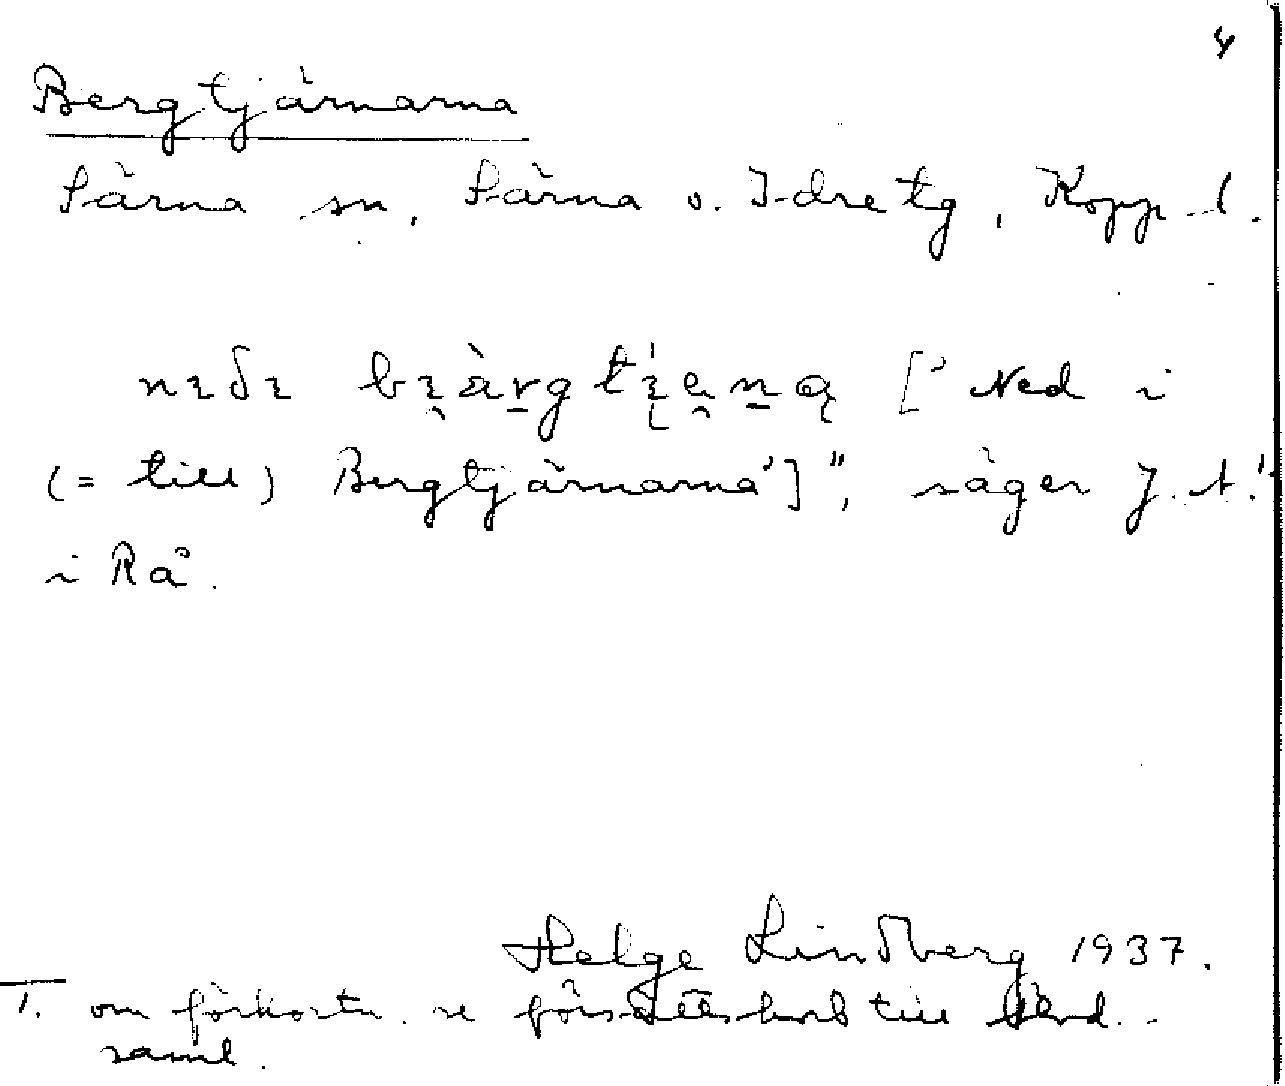 4
Bergtjärnarna
Särna sn, Särna o. Idre tg, Kopp. l.
['Ned i
(= till) Bergtjärnarna']", säger J. A.¹
i Rå.
Helge Lindberg 1937.
1. om förkortn. se till
saml.